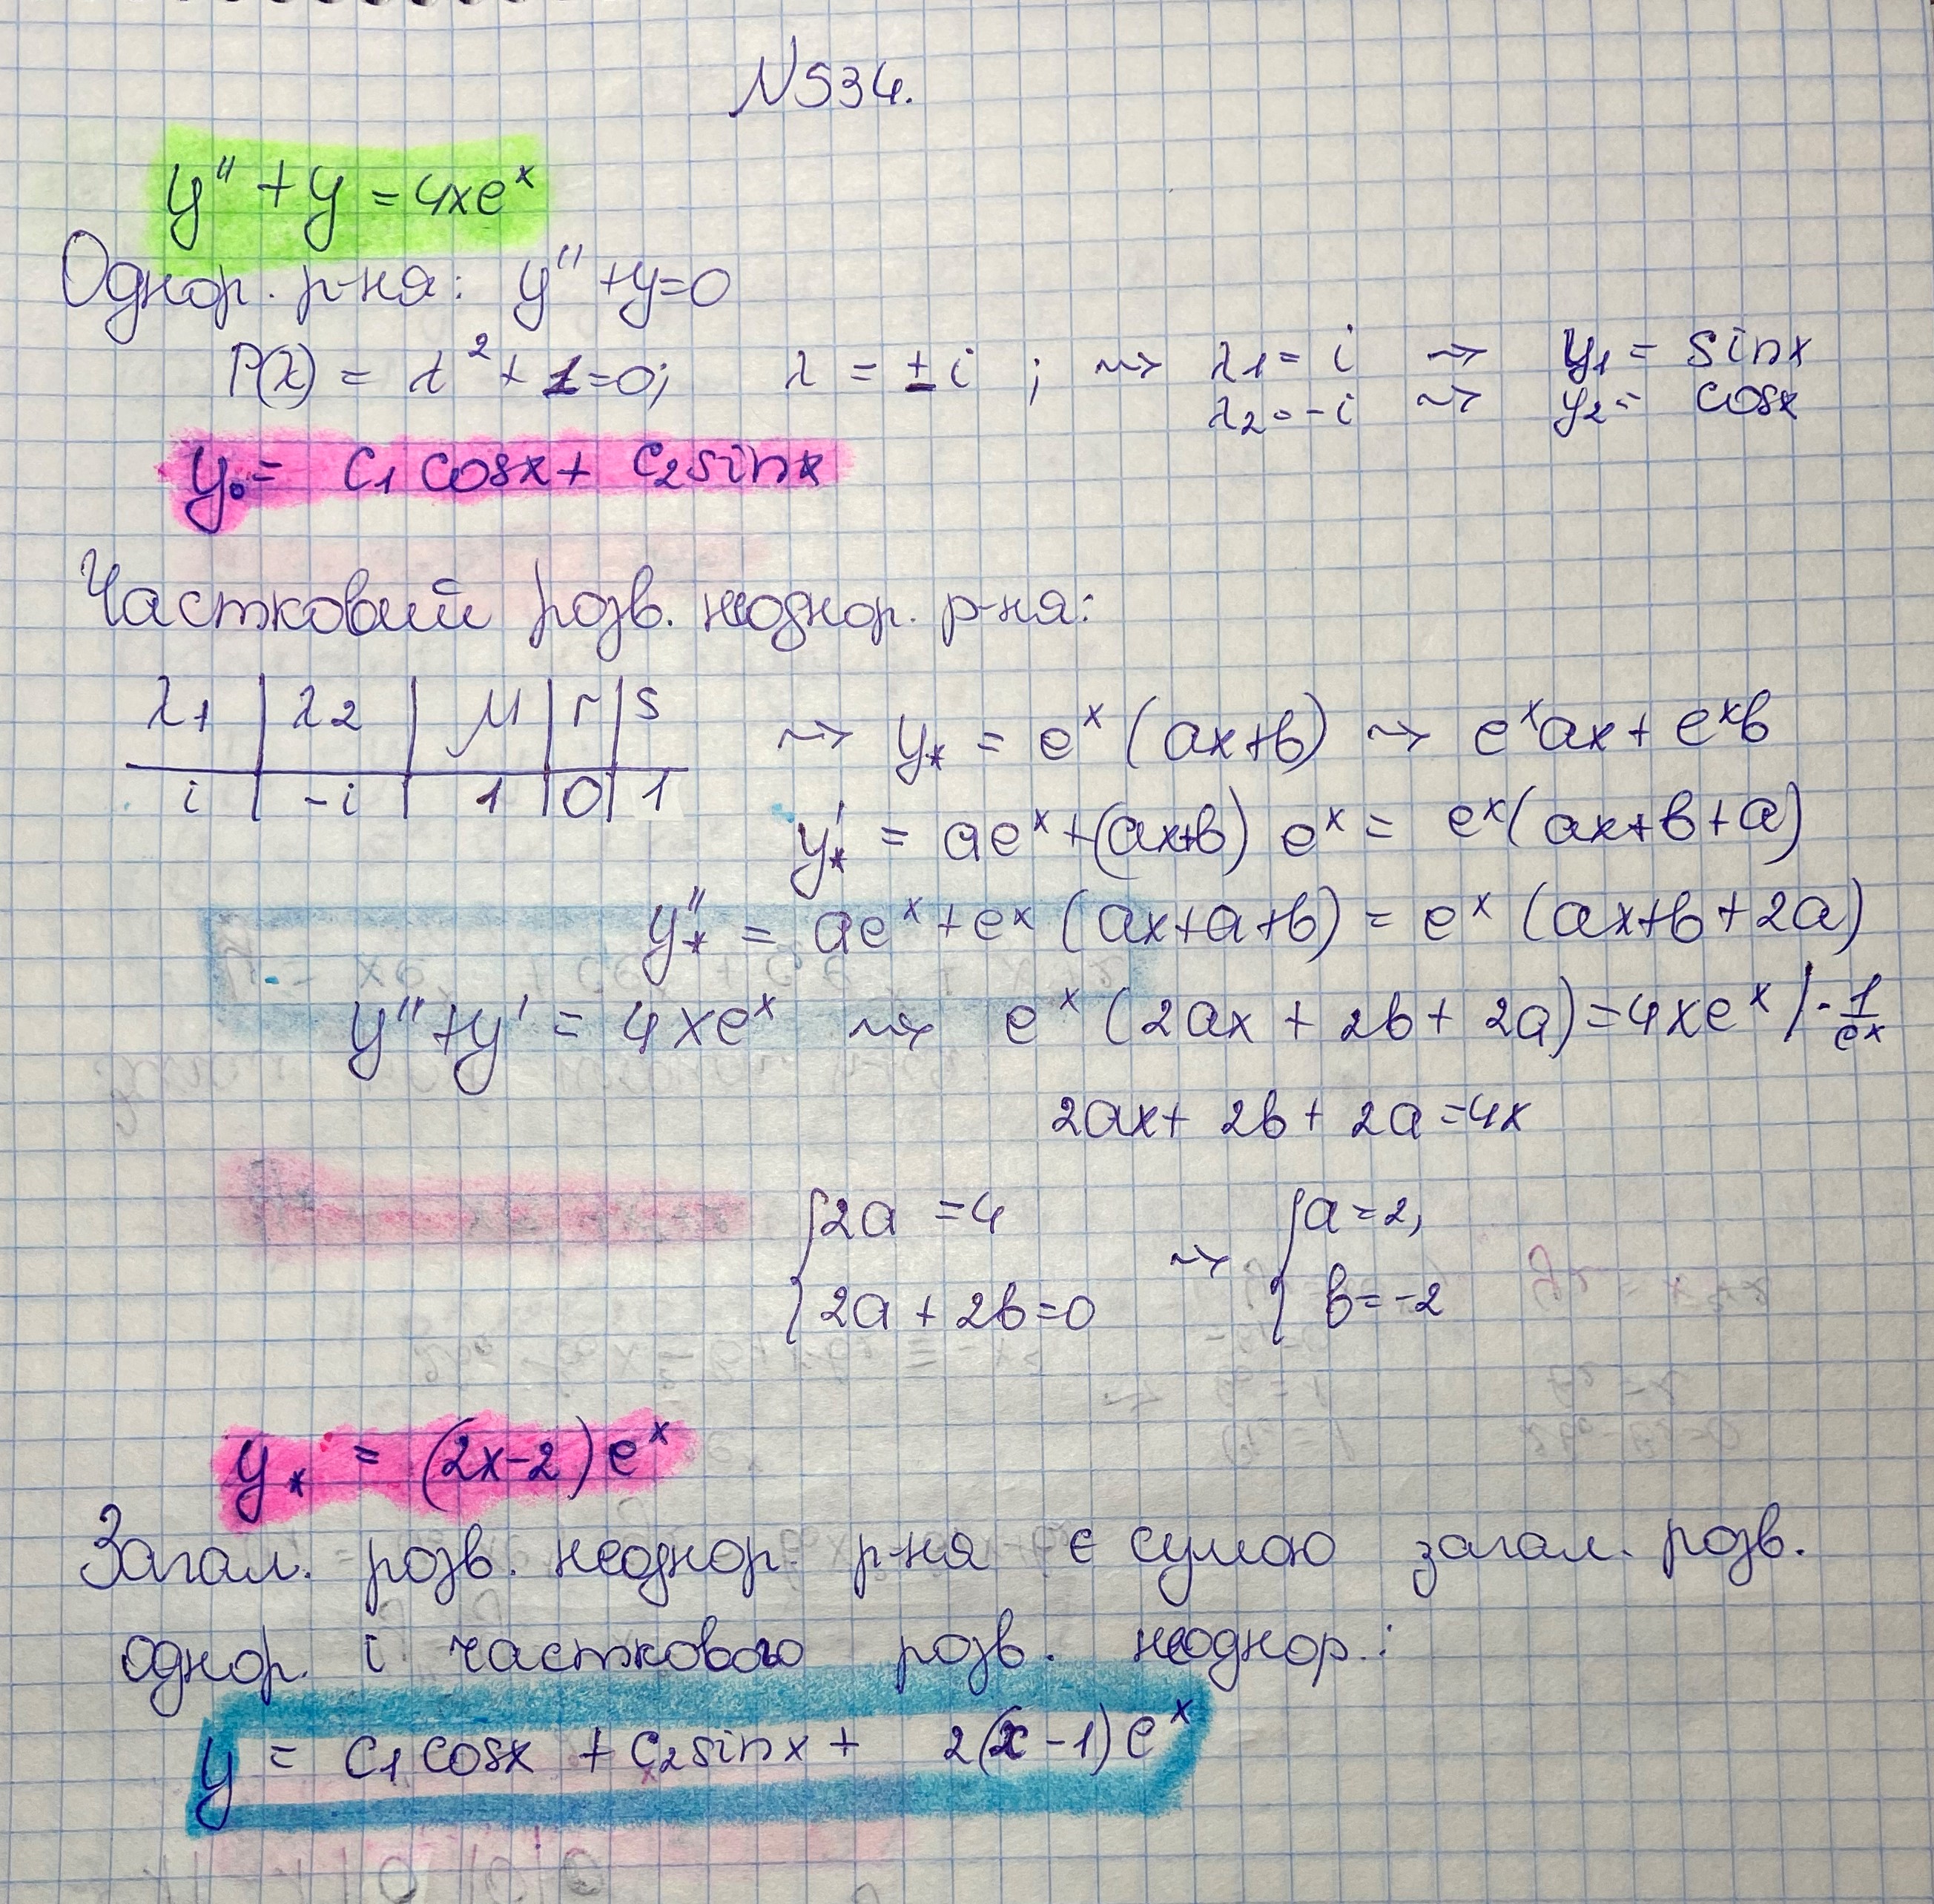 N534.
y'' + y = 4xeˣ
Однор. р-ня: y'' + y = 0
P(λ) = λ² + 1 = 0; λ = ± i ; ⇝ λ₁ = i ⇝ y₁ = sinx
λ₂ = -i ⇝ y₂ = cosx
y₀ = C₁ cosx + C₂ sinx
Частковий розв. неоднор. р-ня:
λ₁ | λ₂ | μ | r | s
i | -i | 1 | 0 | 1
⇝ y* = eˣ (ax+b) ⇝ eˣax + eˣb
y*' = aeˣ + (ax+b) eˣ = eˣ(ax+b+a)
y*'' = aeˣ + eˣ (ax+a+b) = eˣ (ax+b+2a)
y'' + y' = 4xeˣ ⇝ eˣ (2ax + 2b + 2a) = 4xeˣ | · 1/eˣ
2ax + 2b + 2a = 4x
{ 2a = 4 ⇝ { a = 2,
2a + 2b = 0 b = -2
y* = (2x-2)eˣ
Загал. розв. неоднор. р-ня є сумою загал. розв.
однор. і часткового розв. неоднор.:
y = C₁ cosx + C₂ sinx + 2(x-1)eˣ